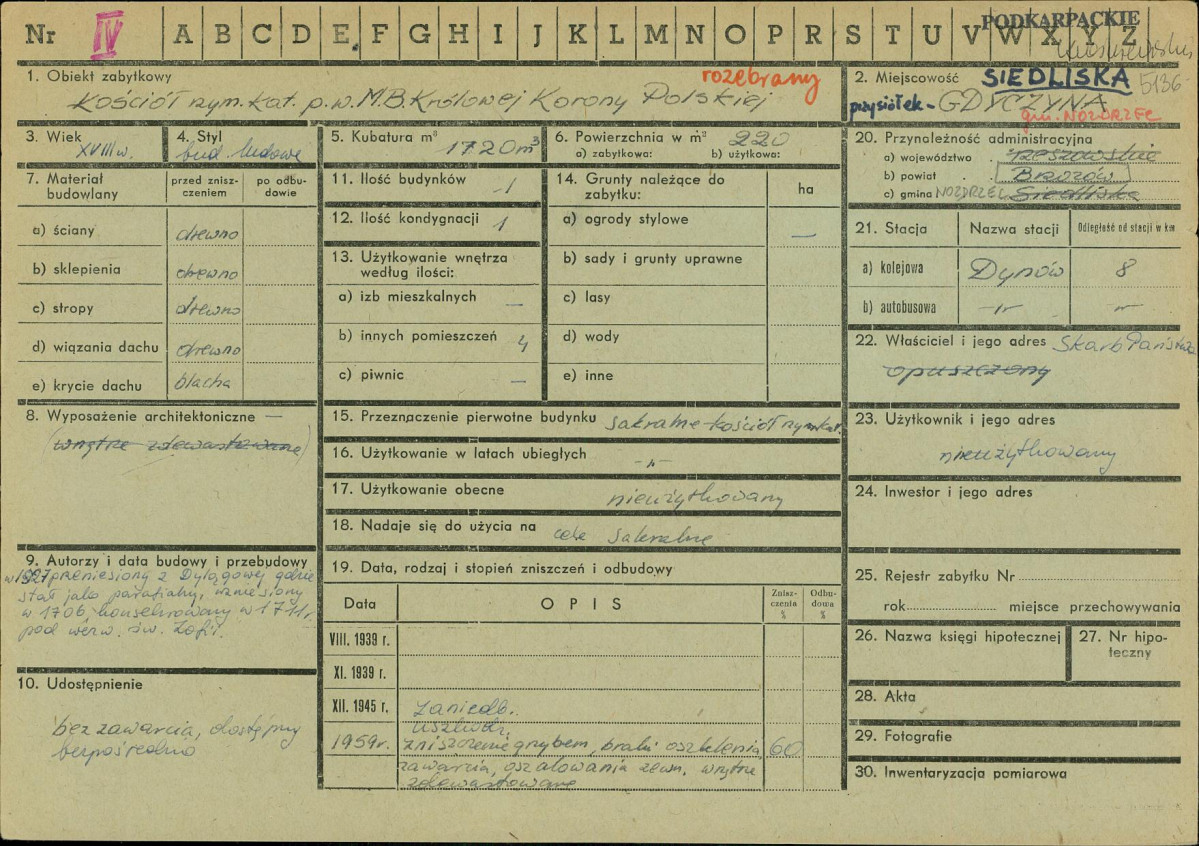 Nr IV A B C D E F G H I J K L M N O P R S T U V W X Y Z
PODKARPACKIE
1. Obiekt zabytkowy rozebrany
Kościół rzym. kat. p.w. M.B. Królowej Korony Polskiej
2. Miejscowość SIEDLISKA 5136
przysiółek - GDYCZYNA
gm. NOZDRZEC
3. Wiek
XVIII w.
4. Styl
bud. ludowe
5. Kubatura m³ 1720 m³
6. Powierzchnia w m² 220
a) zabytkowa: b) użytkowa:
7. Materiał budowlany
przed zniszczeniem
po odbudowie
a) ściany drewno
b) sklepienia drewno
c) stropy drewno
d) wiązania dachu drewno
e) krycie dachu blacha
8. Wyposażenie architektoniczne —
(wnętrze zdewastowane)
9. Autorzy i data budowy i przebudowy
w 1927 przeniesiony z Dylągowej gdzie
stał jako parafialny, wzniesiony
w 1706, konsekrowany w 1711 r.
pod wezw. św. Zofii.
10. Udostępnienie
bez zawarcia, dostępny
bezpośrednio
11. Ilość budynków 1
12. Ilość kondygnacji 1
13. Użytkowanie wnętrza
według ilości:
a) izb mieszkalnych —
b) innych pomieszczeń 4
c) piwnic —
14. Grunty należące do
zabytku: ha
a) ogrody stylowe —
b) sady i grunty uprawne
c) lasy
d) wody
e) inne
15. Przeznaczenie pierwotne budynku sakralne - kościół rzym. kat.
16. Użytkowanie w latach ubiegłych -"-
17. Użytkowanie obecne nieużytkowany
18. Nadaje się do użycia na cele sakralne
19. Data, rodzaj i stopień zniszczeń i odbudowy
Data OPIS Zniszczenia % Odbudowa %
VIII. 1939 r.
XI. 1939 r.
XII. 1945 r. zaniedb.
uszkodz.
1959 r. zniszczenie grzybem, braki oszklenia, 60
zawarcia, oszalowania zewn. wnętrze
zdewastowane
20. Przynależność administracyjna
a) województwo rzeszowskie
b) powiat BRZOZÓW
c) gmina NOZDRZEC Siedliska
21. Stacja Nazwa stacji Odległość od stacji w km
a) kolejowa Dynów 8
b) autobusowa -"- -"-
22. Właściciel i jego adres Skarb Państwa
opuszczony
23. Użytkownik i jego adres
nieużytkowany
24. Inwestor i jego adres
25. Rejestr zabytku Nr
rok miejsce przechowywania
26. Nazwa księgi hipotecznej
27. Nr hipoteczny
28. Akta
29. Fotografie
30. Inwentaryzacja pomiarowa